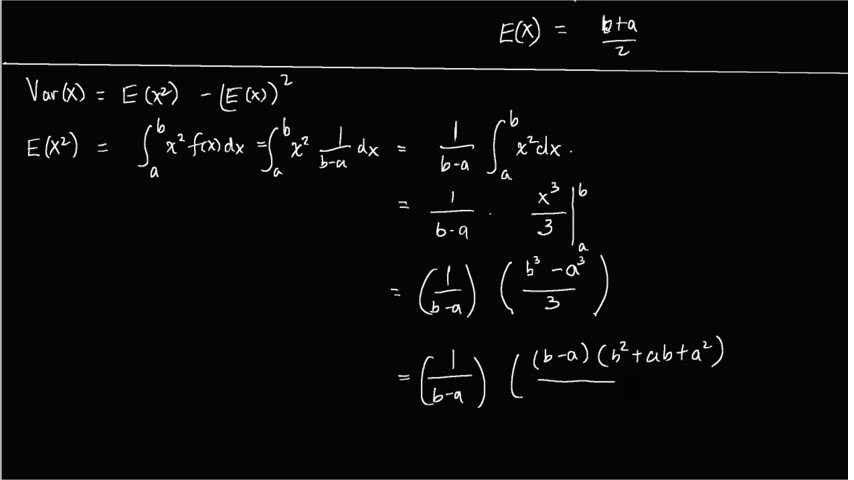 E(X) = \frac{b+a}{2}
Var(x) = E(x²) - (E(x))²
E(X²) = \int_a^b x² f(x) dx = \int_a^b x² \frac{1}{b-a} dx = \frac{1}{b-a} \int_a^b x² dx.
= \frac{1}{b-a} \cdot \frac{x³}{3} |_a^b
= (\frac{1}{b-a}) (\frac{b³ - a³}{3})
= (\frac{1}{b-a}) ( (b-a) (b² + ab + a²)